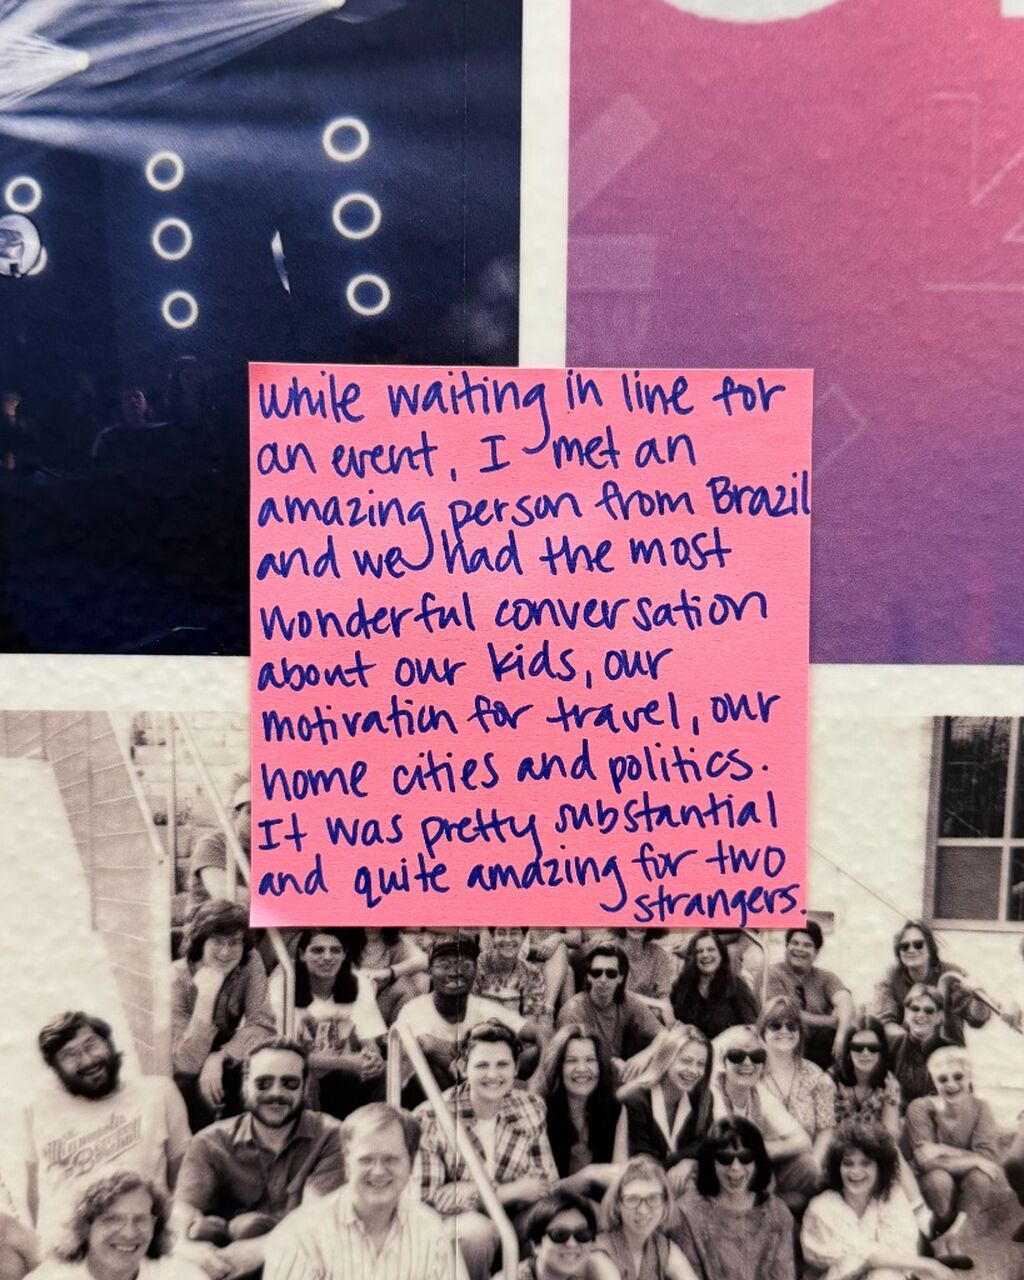 while waiting in line for
an event, I met an
amazing person from Brazil
and we had the most
wonderful conversation
about our kids, our
motivation for travel, our
home cities and politics.
It was pretty substantial
and quite amazing for two
strangers.